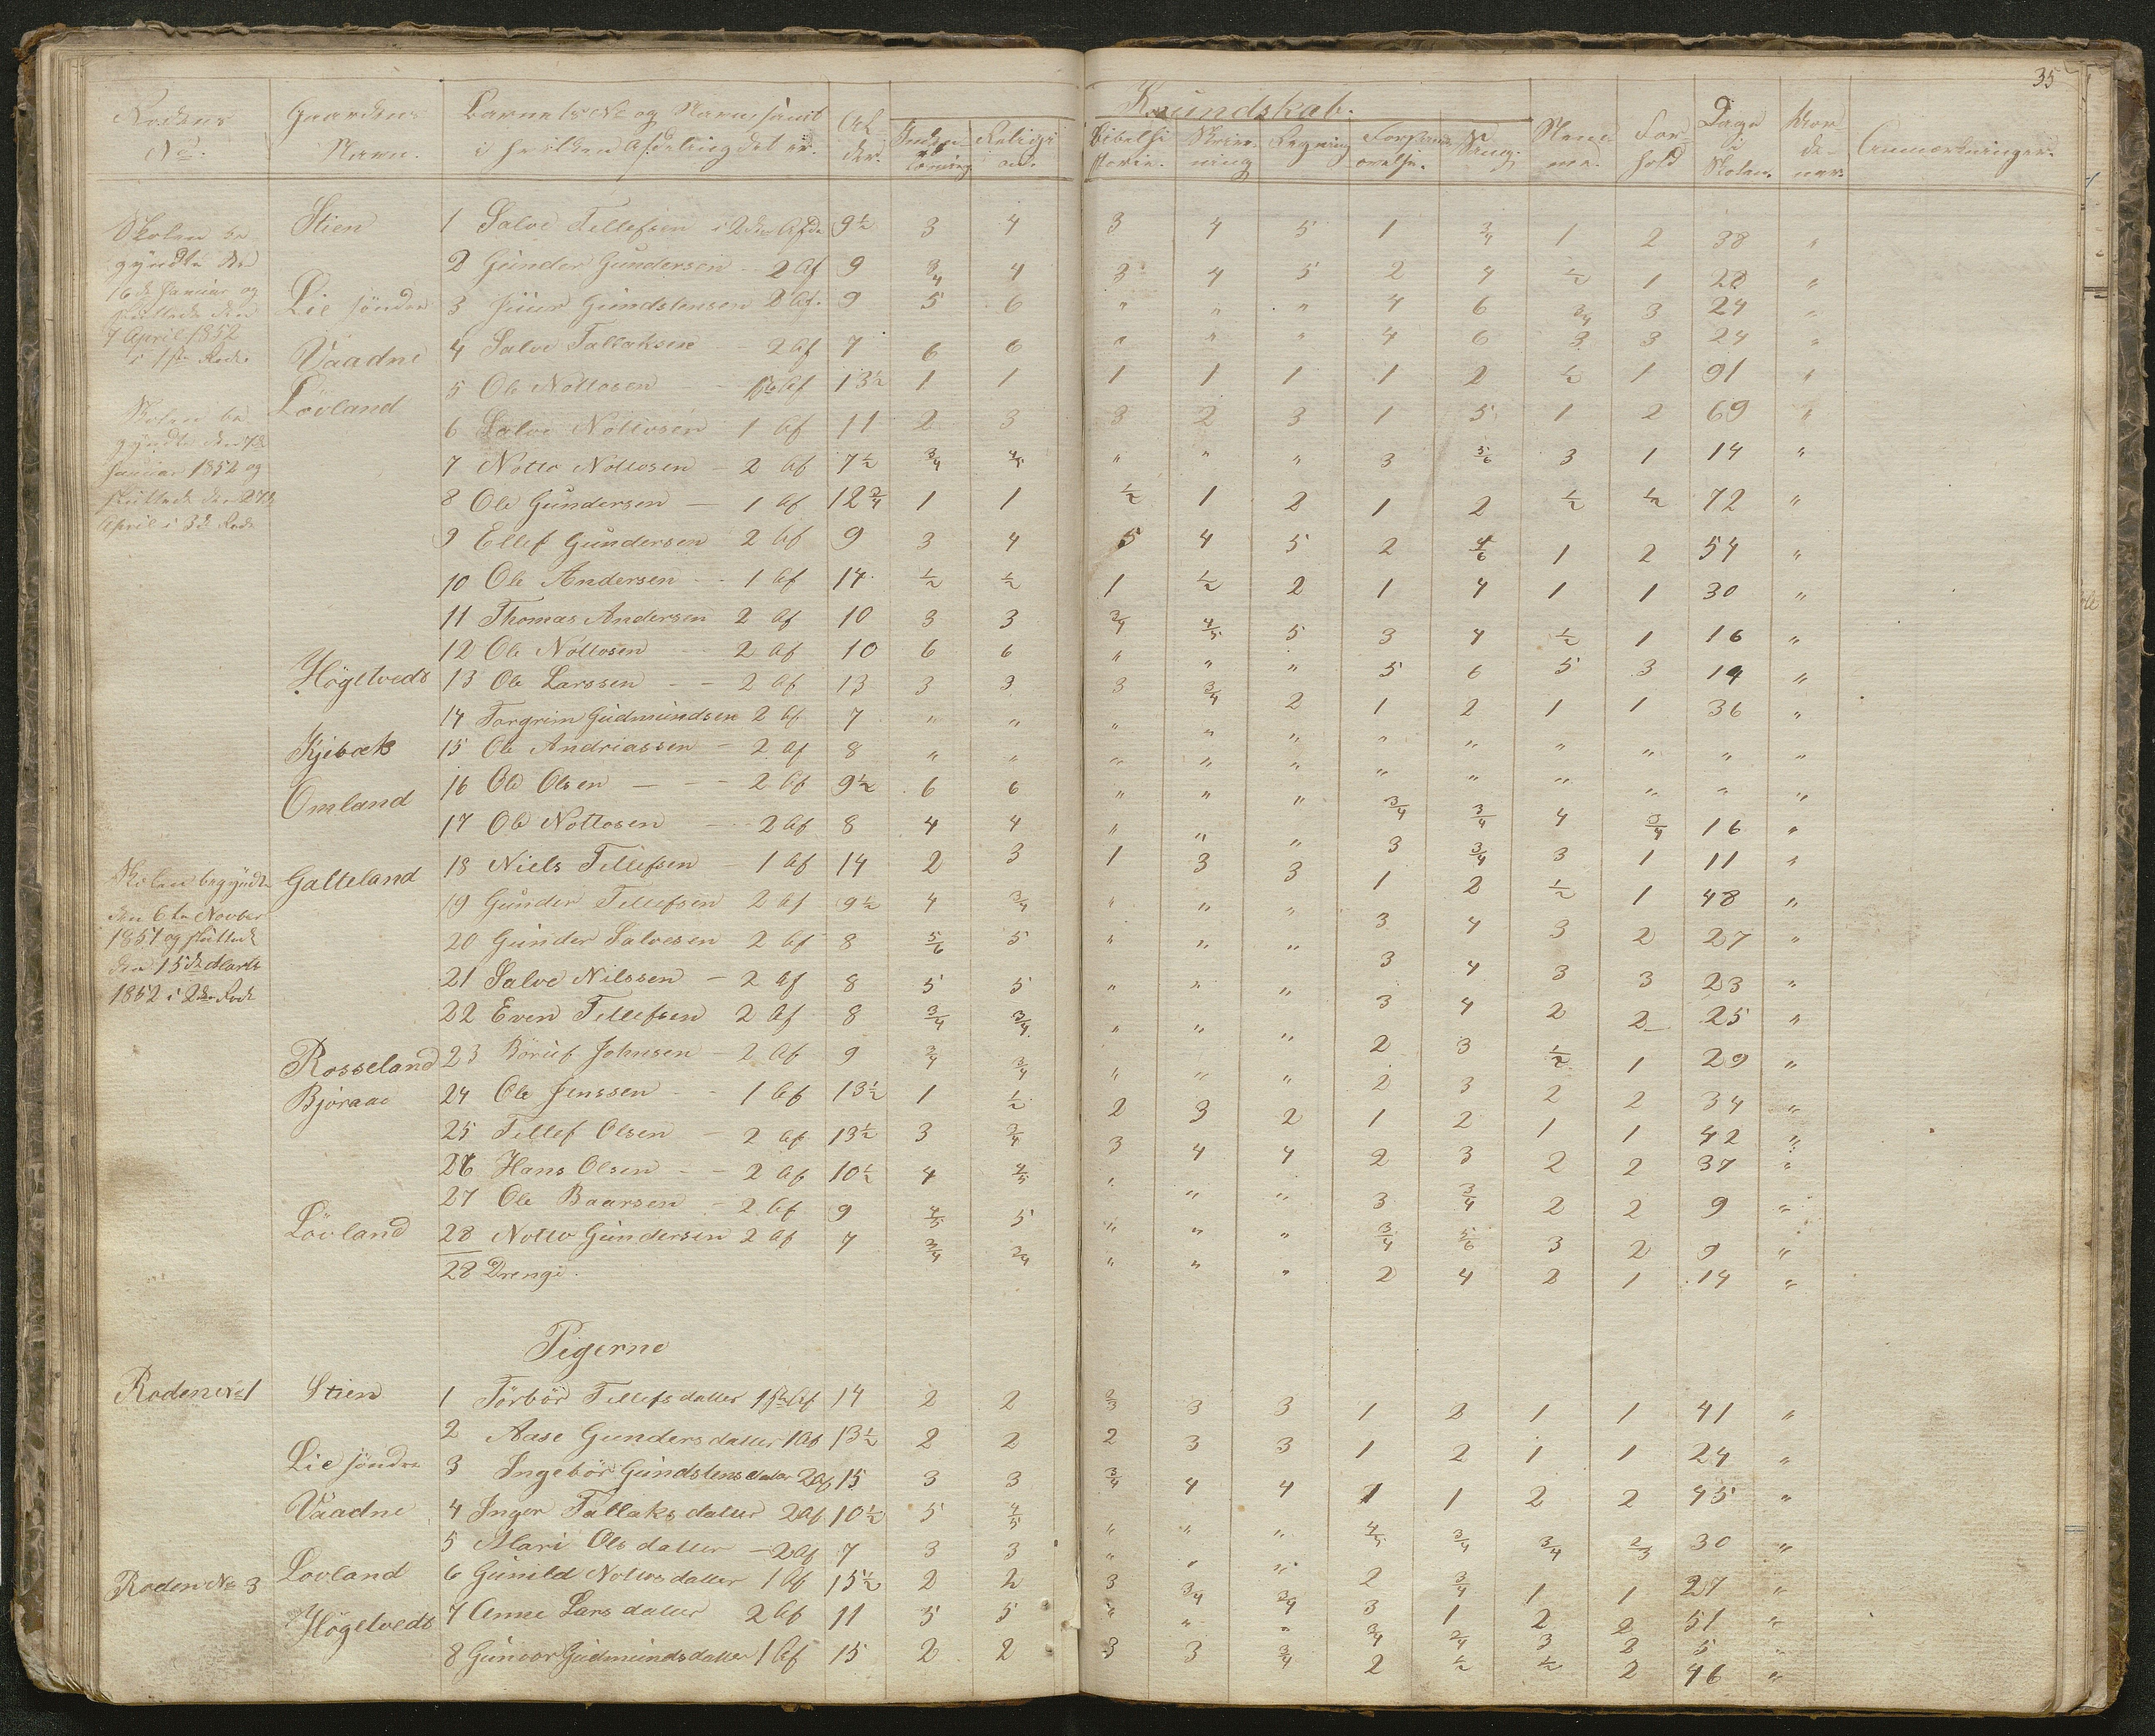 35
Kundskab.
Rodens No. Gaardens Navn. Barnets No og Navn samt i hvilken Afdeling det er. Alder. Inden-læsning Religion. Bibelhistorie. Skriv-ning Regning Forstands øvelse. Sang. Nemme. For-hold Dage i Skolen. Anmærkninger.
Skolen be-
gyndte den
16de Januar og
sluttede den
7 April 1852
i 1ste Rode.
Skolen be-
gyndte den 7de
Januar 1852 og
sluttede den 27de
April i 3de Rode
Skolen begyndte
den 6te Novber
1851 og sluttede
den 15de Marts
1852 i 2den Rode
Stien 1 Salve Tellefsen i 2den Afd. 9½ 3 4 3 4 5 1 ¾ 1 2 38 "
2 Gunder Gundersen 2 Af 9 ¾ 4 3 4 5 2 4 ½ 1 28 "
Lie søndre 3 Juur Gundstensen 2 Af. 9 5 6 " " " 4 6 ¾ 3 24 "
Vaadne 4 Salve Tallaksen 2 Af 7 6 6 " " " 4 6 3 3 24 "
Løvland 5 Ole Nottosen 1ste Af 13½ 1 1 1 1 1 1 2 ½ 1 91 "
6 Salve Nottosen 1 Af 11 2 3 3 2 3 1 5 1 2 69 "
7 Notto Nottosen 2 Af 7½ ¾ 4/5 " " " 3 5/6 3 1 14 "
8 Ole Gundersen 1 Af 12¾ 1 1 ½ 1 2 1 2 ½ ½ 72 "
9 Ellef Gundersen 2 Af 9 3 4 5 4 5 2 4/6 1 2 54 "
10 Ole Andersen 1 Af 14 ½ ½ 1 ½ 2 1 4 1 1 30 "
11 Thomas Andersen 2 Af 10 3 3 ¾ 4/5 5 3 4 ½ 1 16 "
12 Ole Nottosen 2 Af 10 6 6 " " " 5 6 5 3 19 "
Högetvedt 13 Ole Larssen 2 Af 13 3 3 3 ¾ 2 1 2 1 1 36 "
14 Torgrim Gudmundsen 2 Af 7 " " " " " " " " " " "
Kjebæk 15 Ole Andriassen 2 Af 8 " " " " " " " " " " "
Omland 16 Ole Olsen 2 Af 9½ 6 6 " " " ¾ ¾ 4 ¾ 16 "
17 Ole Nottosen 2 Af 8 4 4 " " " 3 ¾ 3 1 11 "
Galteland 18 Niels Tellefsen 1 Af 14 2 3 1 3 3 1 2 ½ 1 48 "
19 Gunder Tellefsen 2 Af 9½ 4 ¾ " " " 3 4 3 2 27 "
20 Gunder Salvesen 2 Af 8 5/6 5 " " " 3 4 3 3 23 "
21 Salve Nilssen 2 Af 8 5 5 " " " 3 4 2 2 25 "
22 Even Tellefsen 2 Af 8 ¾ ¾ " " " 2 3 ½ 1 29 "
Rosseland 23 Böruf Johnsen 2 Af 9 ¾ ¾ " " " 2 3 2 2 34 "
Björaae 24 Ole Jenssen 1 Af 13½ 1 ½ 2 3 2 1 2 1 1 42 "
25 Tellef Olsen 2 Af 13½ 3 ¾ 3 4 4 2 3 2 2 37 "
26 Hans Olsen 2 Af 10½ 4 4/5 " " " 3 ¾ 2 2 9 "
27 Ole Baarsen 2 Af 9 4/5 5 " " " ¾ 5/6 3 2 9 "
Lövland 28 Notto Gundersen 2 Af 7 ¾ ¾ " " " 2 4 2 1 14 "
28 Drenge.
Pigerne
Roden No 1 Stien 1 Törbör Tellefsdatter 1ste Af 14 2 2 2/3 3 3 1 2 1 1 41 "
2 Aase Gundersdatter 1 Af 13½ 2 2 2 3 3 1 2 1 1 24 "
Lie söndre 3 Ingebör Gundstensdatter 2 Af 15 3 3 ¾ 4 4 1 1 2 2 45 "
Vaadne 4 Inger Tallaksdatter 2 Af 10½ 5 4/5 " " " 4/5 ¾ ¾ 2/3 30 "
5 Mari Olsdatter 2 Af 7 3 3 " " " 2 ¾ 1 1 27 "
Roden No 3 Lovland 6 Gunild Nottosdatter 1 Af 15½ 2 2 3 ¾ ¾ 3 1 2 2 51 "
Högetvedt 7 Anne Larsdatter 2 Af 11 5 5 " " " ¾ 2/4 3 2 5 "
8 Gunvor Gudmundsdatter 1 Af 15 2 2 3 3 ¾ 2 ½ ½ 2 46 "